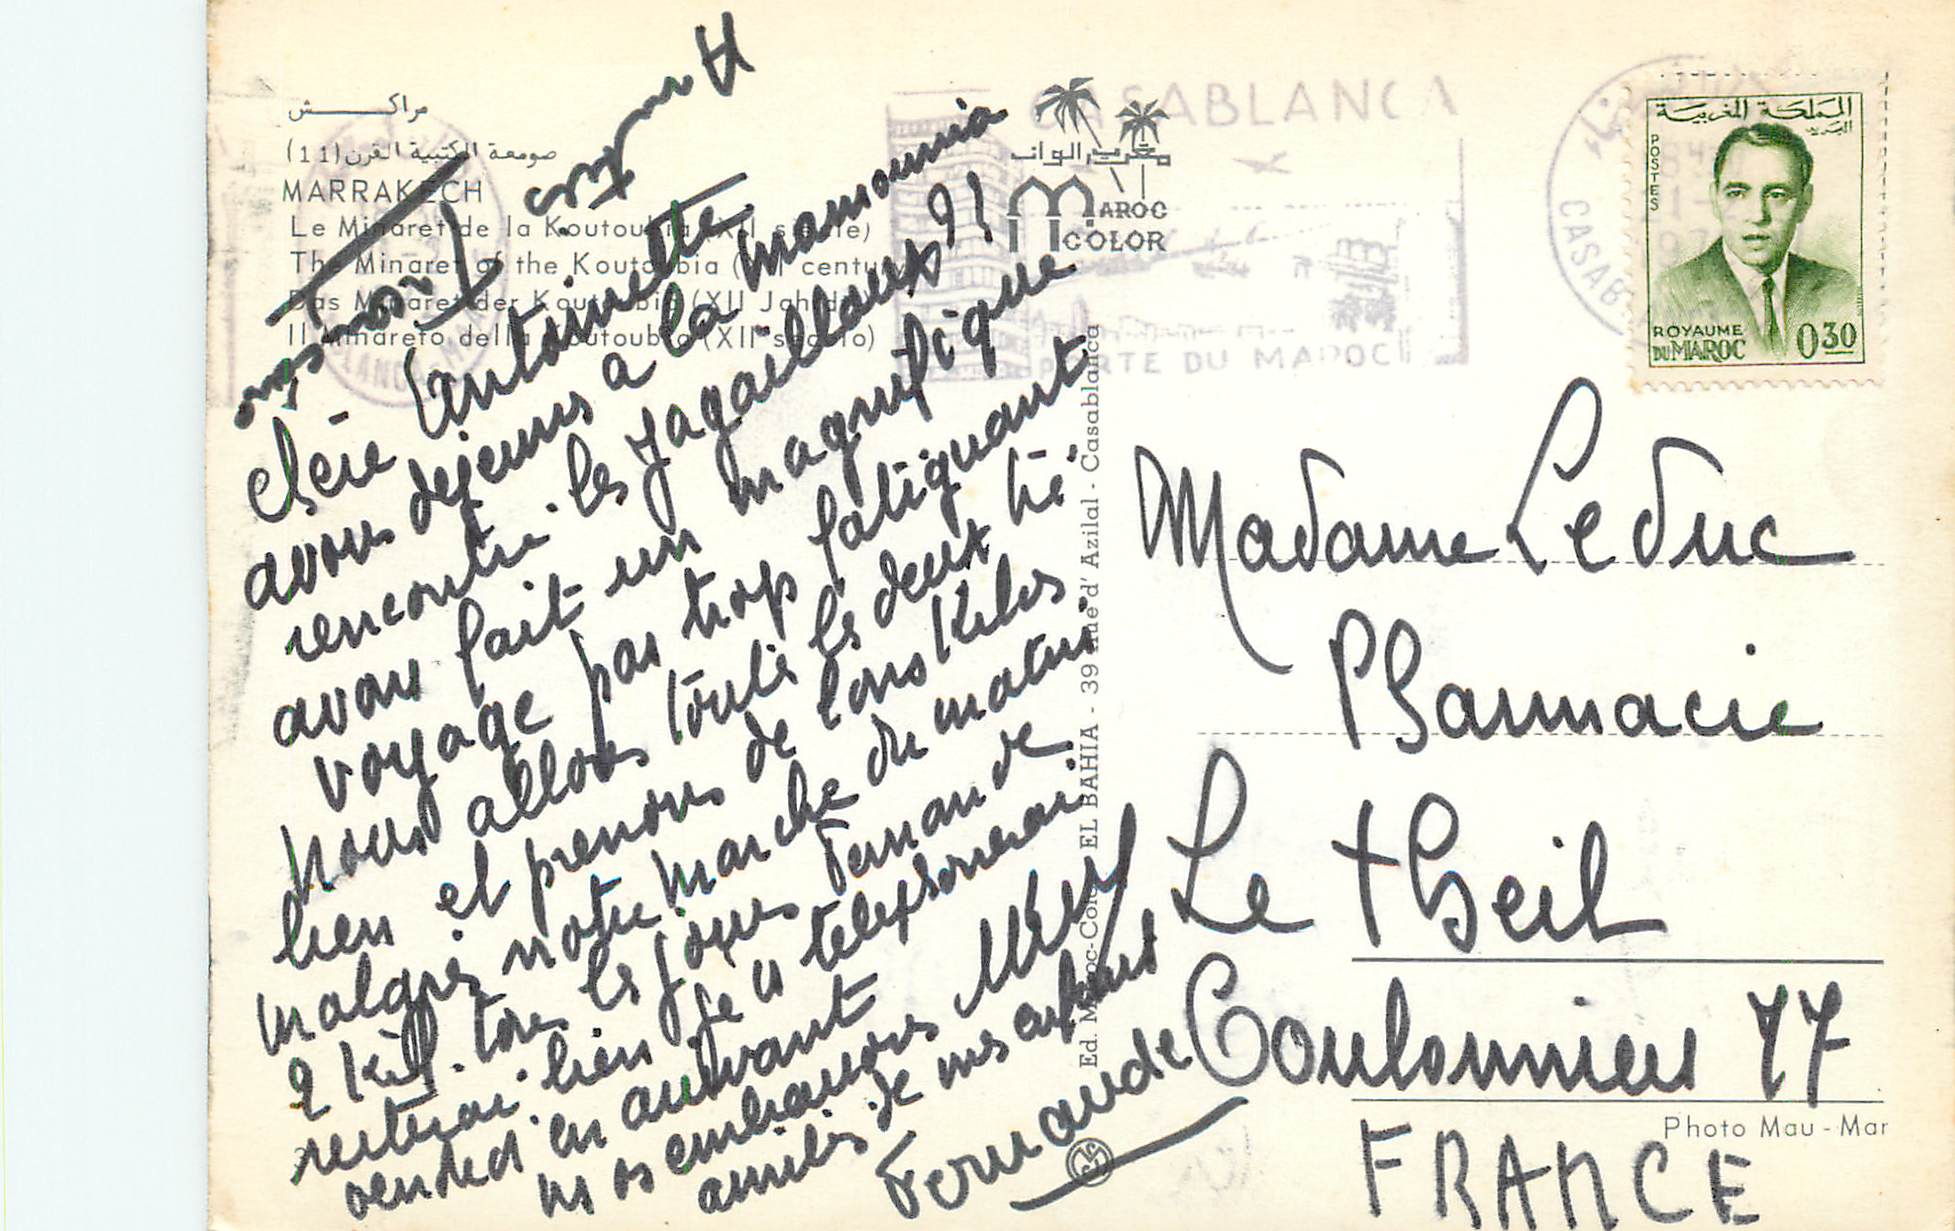 مراكــــش
صومعة الكتبية القرن (11)
MARRAKECH
Le Minaret de la Koutoubia (XII siècle)
The Minaret of the Koutoubia (XII century)
Das Minaret der Koutoubia (XII Jahrd)
Il Minareto della Koutoubia (XII secolo)
nous
Chère Antoinette
avons dejeuns a la mamounia
rencontre les Jagaillaux ?!
avons fait un magnifique
voyage pas trop fatiguant
nous allons toute les deux tré
bien et prenons de bons Kilos
malgres notre marche du matin
2 kil. tous les jours Fernande
bien je te telephonerai
vendredi en arrivant
nos embrassons
amitiés de mes enfants
Fernande
CASABLANCA
PORTE DU MAROC
MAROC
COLOR
Ed. Maroc-Color EL BAHIA - 39 Rue d'Azilal - Casablanca
CASAB
المملكة المغربية
البريد
POSTES
ROYAUME
DU MAROC
0,30
Madame Leduc
Pharmacie
Le theil
Coulommiers 77
FRANCE
Photo Mau-Mar